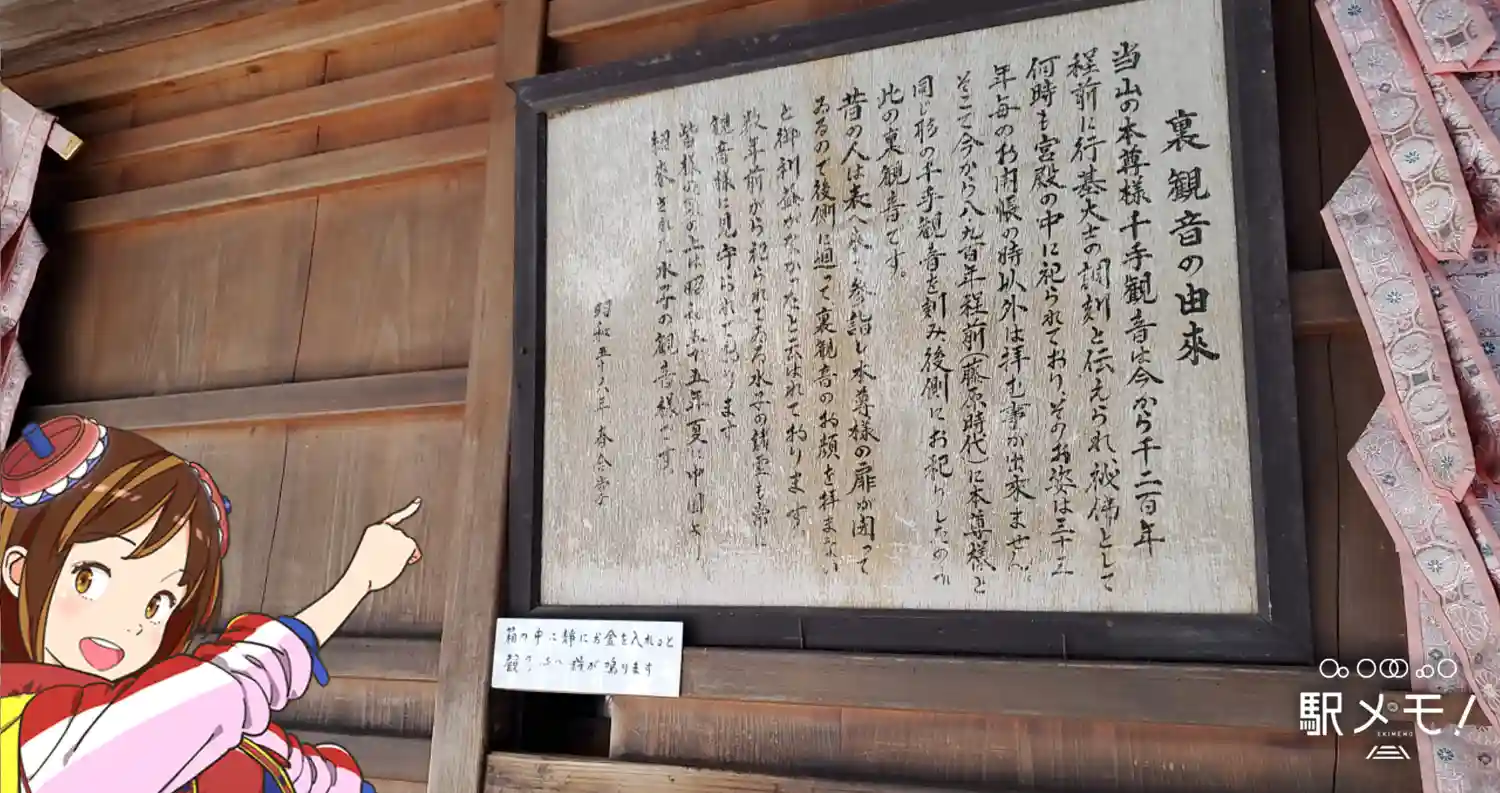 裏観音の由來
当山の本尊様千手観音は今から千二百年
程前に行基大士の調刻と伝えられ秘佛として
何時も宮殿の中に祀られており、そのお姿は三十三
年毎のお開帳の時以外は拝む事が出來ません。
そこで今から八・九百年程前(藤原時代)に本尊様と
同じ形の千手観音を刻み後側にお祀りしたのが
此の裏観音です。
昔の人は表へ參詣し本尊様の扉が閉って
ゐるので後側に廻って裏観音のお顔を拝まない
と御利益がなかったと云はれて居ります
数年前から祀られてゐる水子の精霊も常に
観音様に見守られて居ります
皆様の上は昭和五十五年夏に中国より
招來された水子の観音様です
昭和五十六年 春
箱の中に静にお金を入れると
観 鳴ります
駅メモ!
EKIMEMO